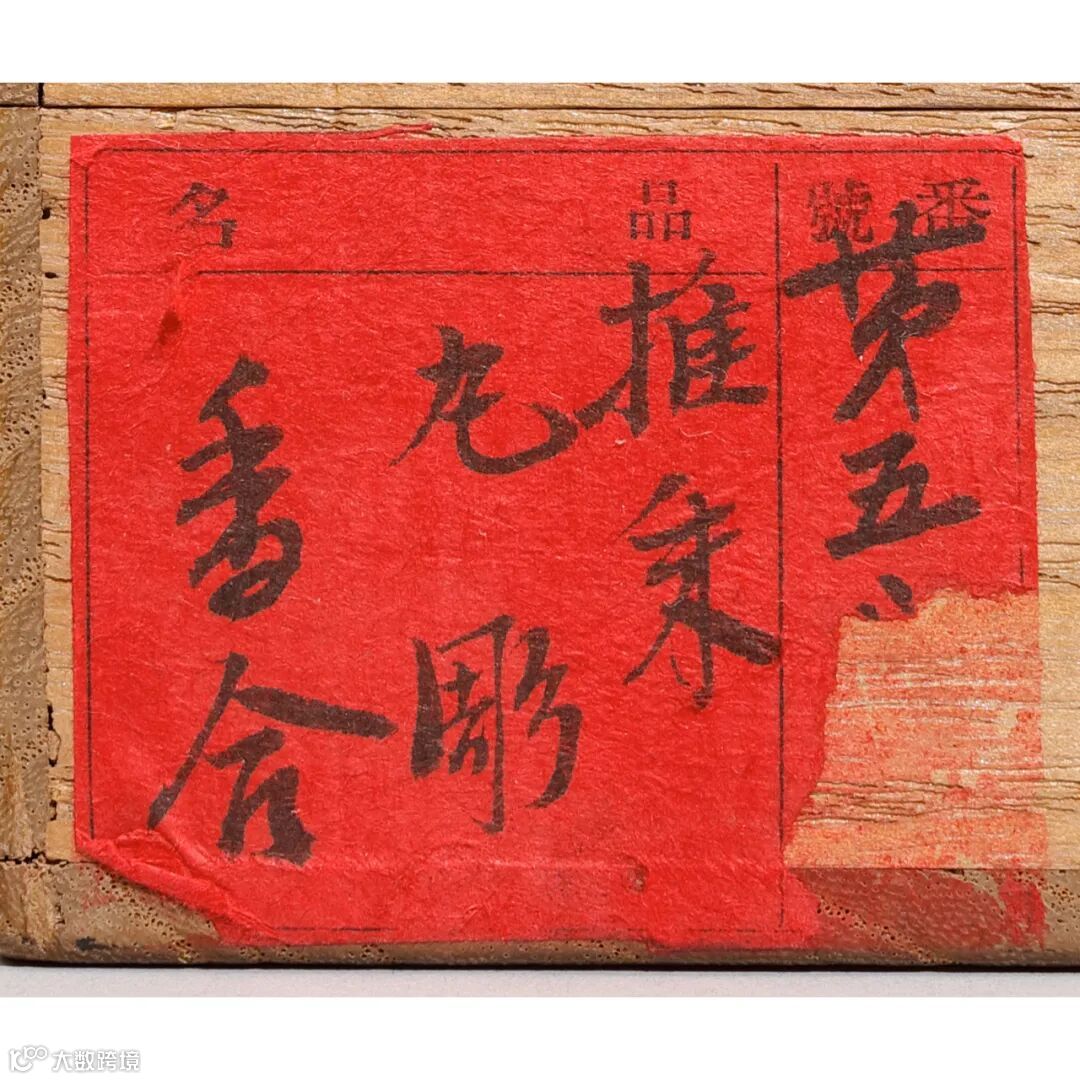 番號
第五
品名
推朱
丸彫
香合
大数跨境